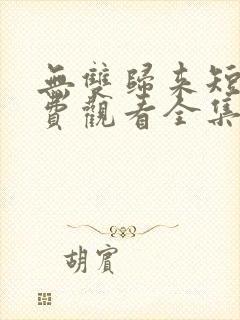 無雙歸來短
費觀看全集
胡賓